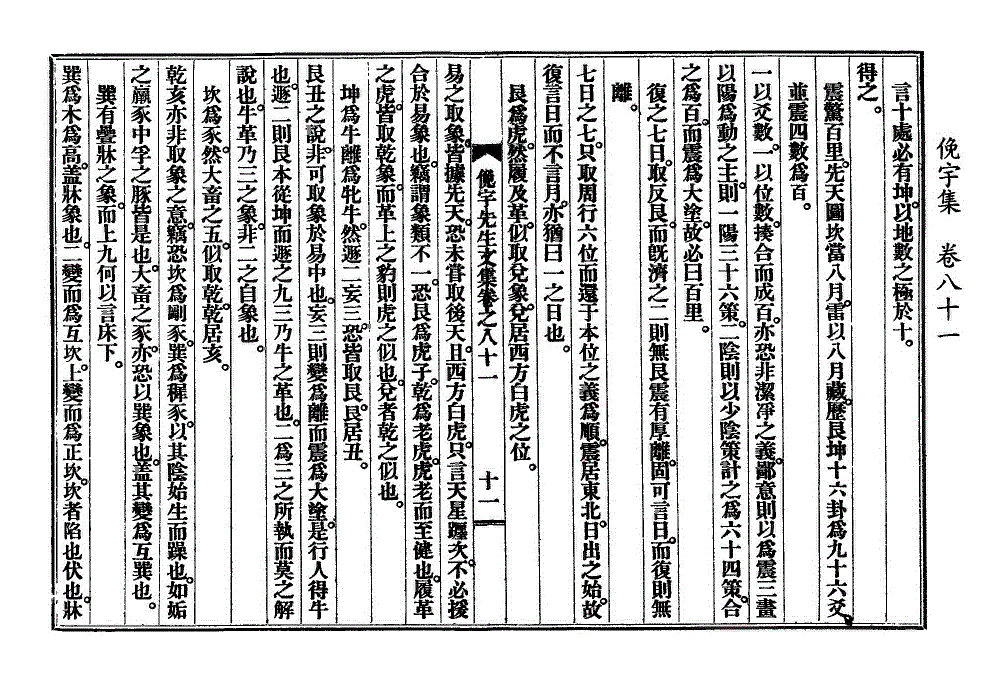 俛宇集　卷八十一
言十處必有坤。以地數之極於十。
得之。
震驚百里。先天圖坎當八月。雷以八月藏。歷艮坤十六卦爲九十六爻。
並震四數爲百。
一以爻數。一以位數。揍合而成百。亦恐非潔淨之義。鄙意則以爲震三畫
以陽爲動之主。則一陽三十六策。二陰則以少陰策計之爲六十四策。合
之爲百。而震爲大塗。故必曰百里。
復之七日。取反艮。而旣濟之二則無艮震有厚離。固可言日。而復則無
離。
七日之七。只取周行六位而還于本位之義爲順。震居東北。日出之始。故
復言日而不言月。亦猶曰一之日也。
艮爲虎。然履及革。似取兌象。兌居西方白虎之位。
俛宇先生文集卷之八十一　十一
易之取象。皆據先天。恐未甞取後天。且西方白虎。只言天星躔次。不必援
合於易象也。竊謂象類不一。恐艮爲虎子。乾爲老虎。虎老而至健也。履革
之虎。皆取乾象。而革上之豹則虎之似也。兌者乾之似也。
坤爲牛離爲牝牛。然遯二妄三恐皆取艮。艮居丑。
艮丑之說。非可取象於易中也。妄三則變爲離而震爲大塗。是行人得牛
也。遯二則艮本從坤而遯之九三乃牛之革也。二爲三之所執而莫之解
說也。牛革乃三之象。非二之自象也。
坎爲豕。然大畜之五。似取乾。乾居亥。
乾亥亦非取象之意。竊恐坎爲剛豕。巽爲穉豕。以其陰始生而躁也。如姤
之羸豕中孚之豚皆是也。大畜之豕。亦恐以巽象也。盖其變爲互巽也。
巽有疊牀之象。而上九何以言床下。
巽爲木爲高。盖牀象也。二變而爲互坎。上變而爲正坎。坎者陷也伏也。牀